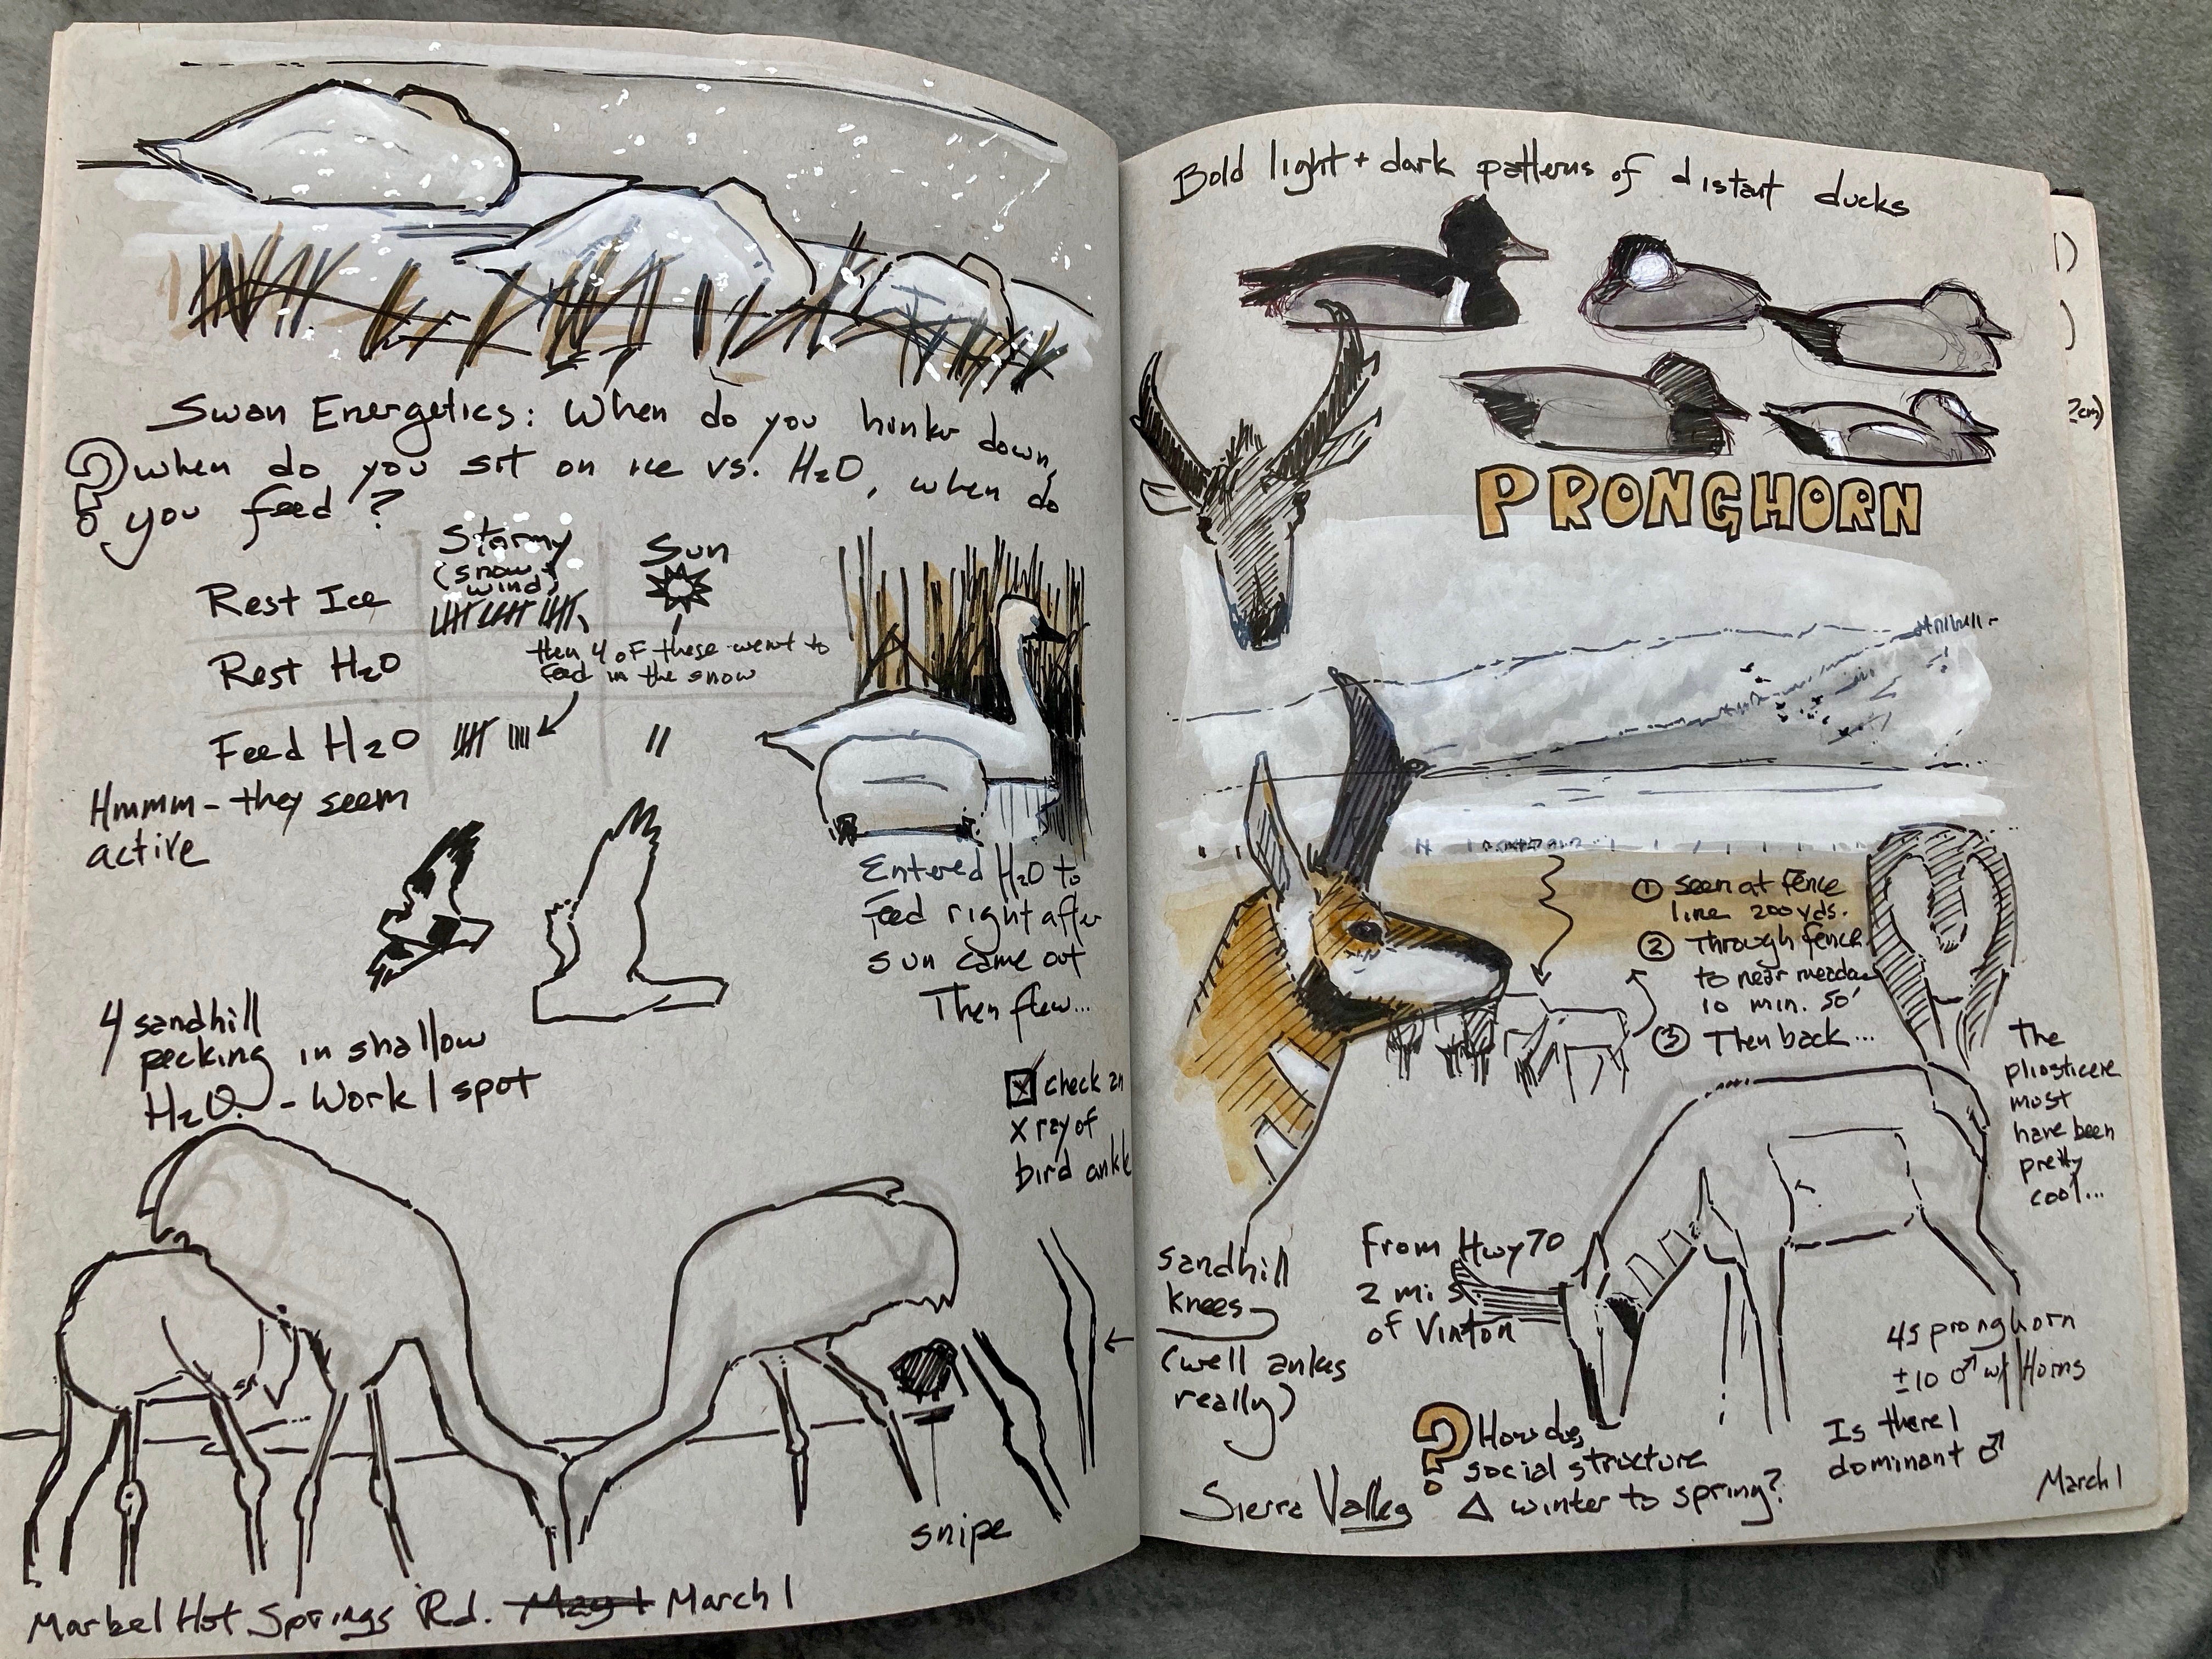 Swan Energetics: When do you hunker down,
when do you sit on ice vs. H2O, when do
you feed?
Stormy
(snow +
wind)
Sun
Rest Ice
Rest H2O
then 4 of these went to
feed in the snow
Feed H2O
Hmmm - they seem
active
Entered H2O to
feed right after
sun came out
Then flew...
4 sandhill
pecking in shallow
H2O. - Work 1 spot
check an
x ray of
bird ankle
snipe
Marbel Hot Springs Rd. May 1 March 1
Bold light + dark patterns of distant ducks
PRONGHORN
① seen at fence
line 200 yds.
② Through fence
to near meadow
10 min. 50'
③ Then back...
The
pliosticene
must
have been
pretty
cool...
sandhill
knees
(well ankles
really)
From Hwy 70
2 mi S
of Vinton
45 pronghorn
±10 ♂ w/ Horns
Is there 1
dominant ♂
? How does
social structure
Δ winter to spring?
Sierra Valley
March 1